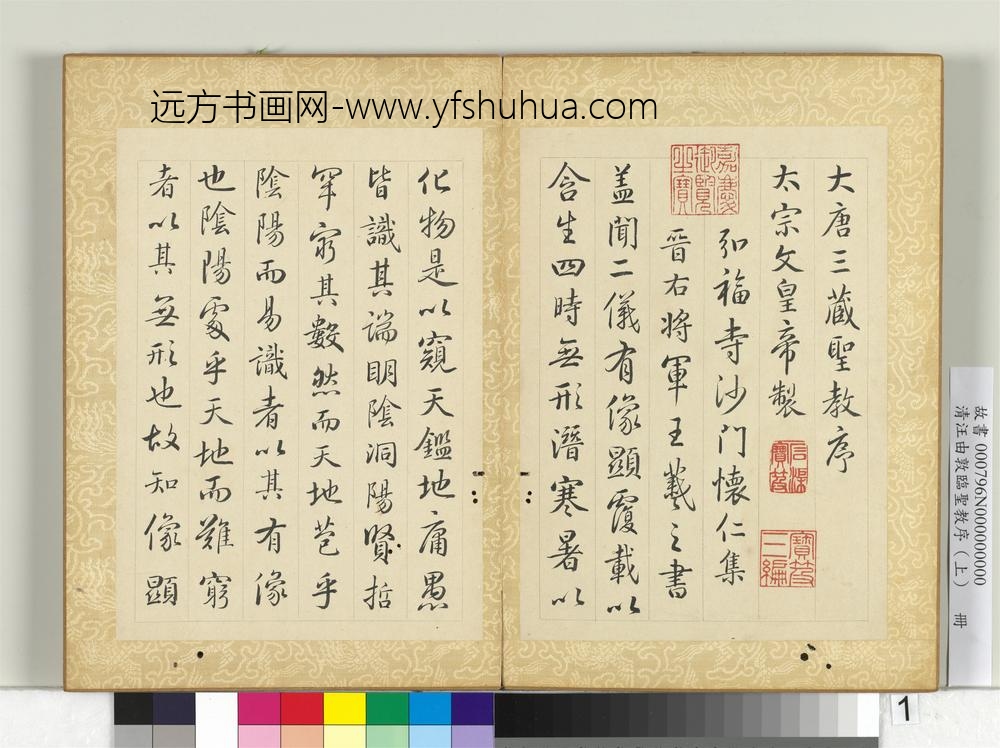 远方书画网-www.yfshuhua.com
大唐三藏聖教序
太宗文皇帝製
弘福寺沙門懷仁集
晉右将軍王羲之書
盖聞二儀有像顯覆載以
含生四時無形潛寒暑以
化物是以窺天鑑地庸愚
皆識其端明陰洞陽賢哲
罕窮其數然而天地苞乎
陰陽而易識者以其有像
也陰陽處乎天地而難窮
者以其無形也故知像顯
嘉慶御覽之寶
石渠寶笈
寶笈三編
故書 000796N000000000
清汪由敦臨聖教序（上） 冊
1